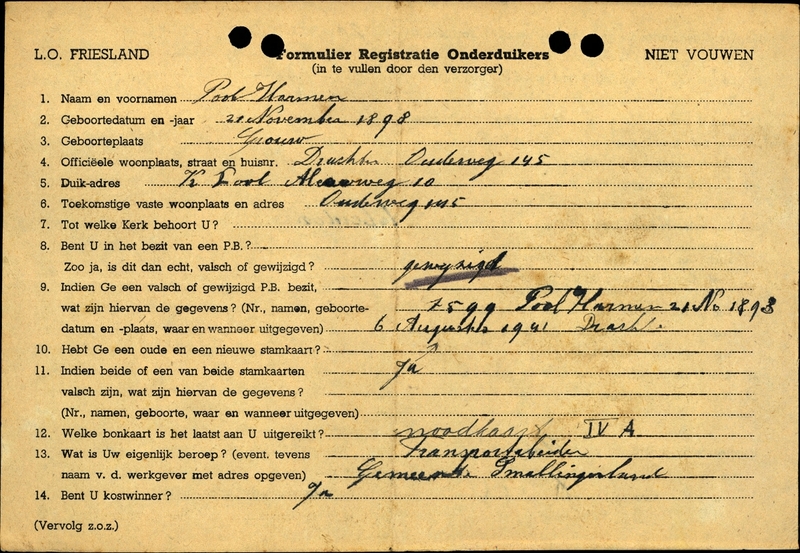 L.O. FRIESLAND Formulier Registratie Onderduikers NIET VOUWEN
(in te vullen door den verzorger)
1. Naam en voornamen Pool Harmen
2. Geboortedatum en -jaar 21 November 1898
3. Geboorteplaats Grouw
4. Officiëele woonplaats, straat en huisnr. Drachten Oudeweg 145
5. Duik-adres K Pool 10
6. Toekomstige vaste woonplaats en adres Oudeweg 145
7. Tot welke Kerk behoort U?
8. Bent U in het bezit van een P.B.?
Zoo ja, is dit dan echt, valsch of gewijzigd? gewyzigd
9. Indien Ge een valsch of gewijzigd P.B. bezit,
wat zijn hiervan de gegevens? (Nr., namen, geboorte- 7599 Pool Harmen 21 No 1893
datum en -plaats, waar en wanneer uitgegeven) 6 Augustus 1941 Dracht
10. Hebt Ge een oude en een nieuwe stamkaart?
11. Indien beide of een van beide stamkaarten ja
valsch zijn, wat zijn hiervan de gegevens?
(Nr., namen, geboorte, waar en wanneer uitgegeven)
12. Welke bonkaart is het laatst aan U uitgereikt? noodkaart IV A
13. Wat is Uw eigenlijk beroep? (event. tevens Transportarbeider
naam v. d. werkgever met adres opgeven) Gemeente Smallingerland
14. Bent U kostwinner? Ja
(Vervolg z.o.z.)